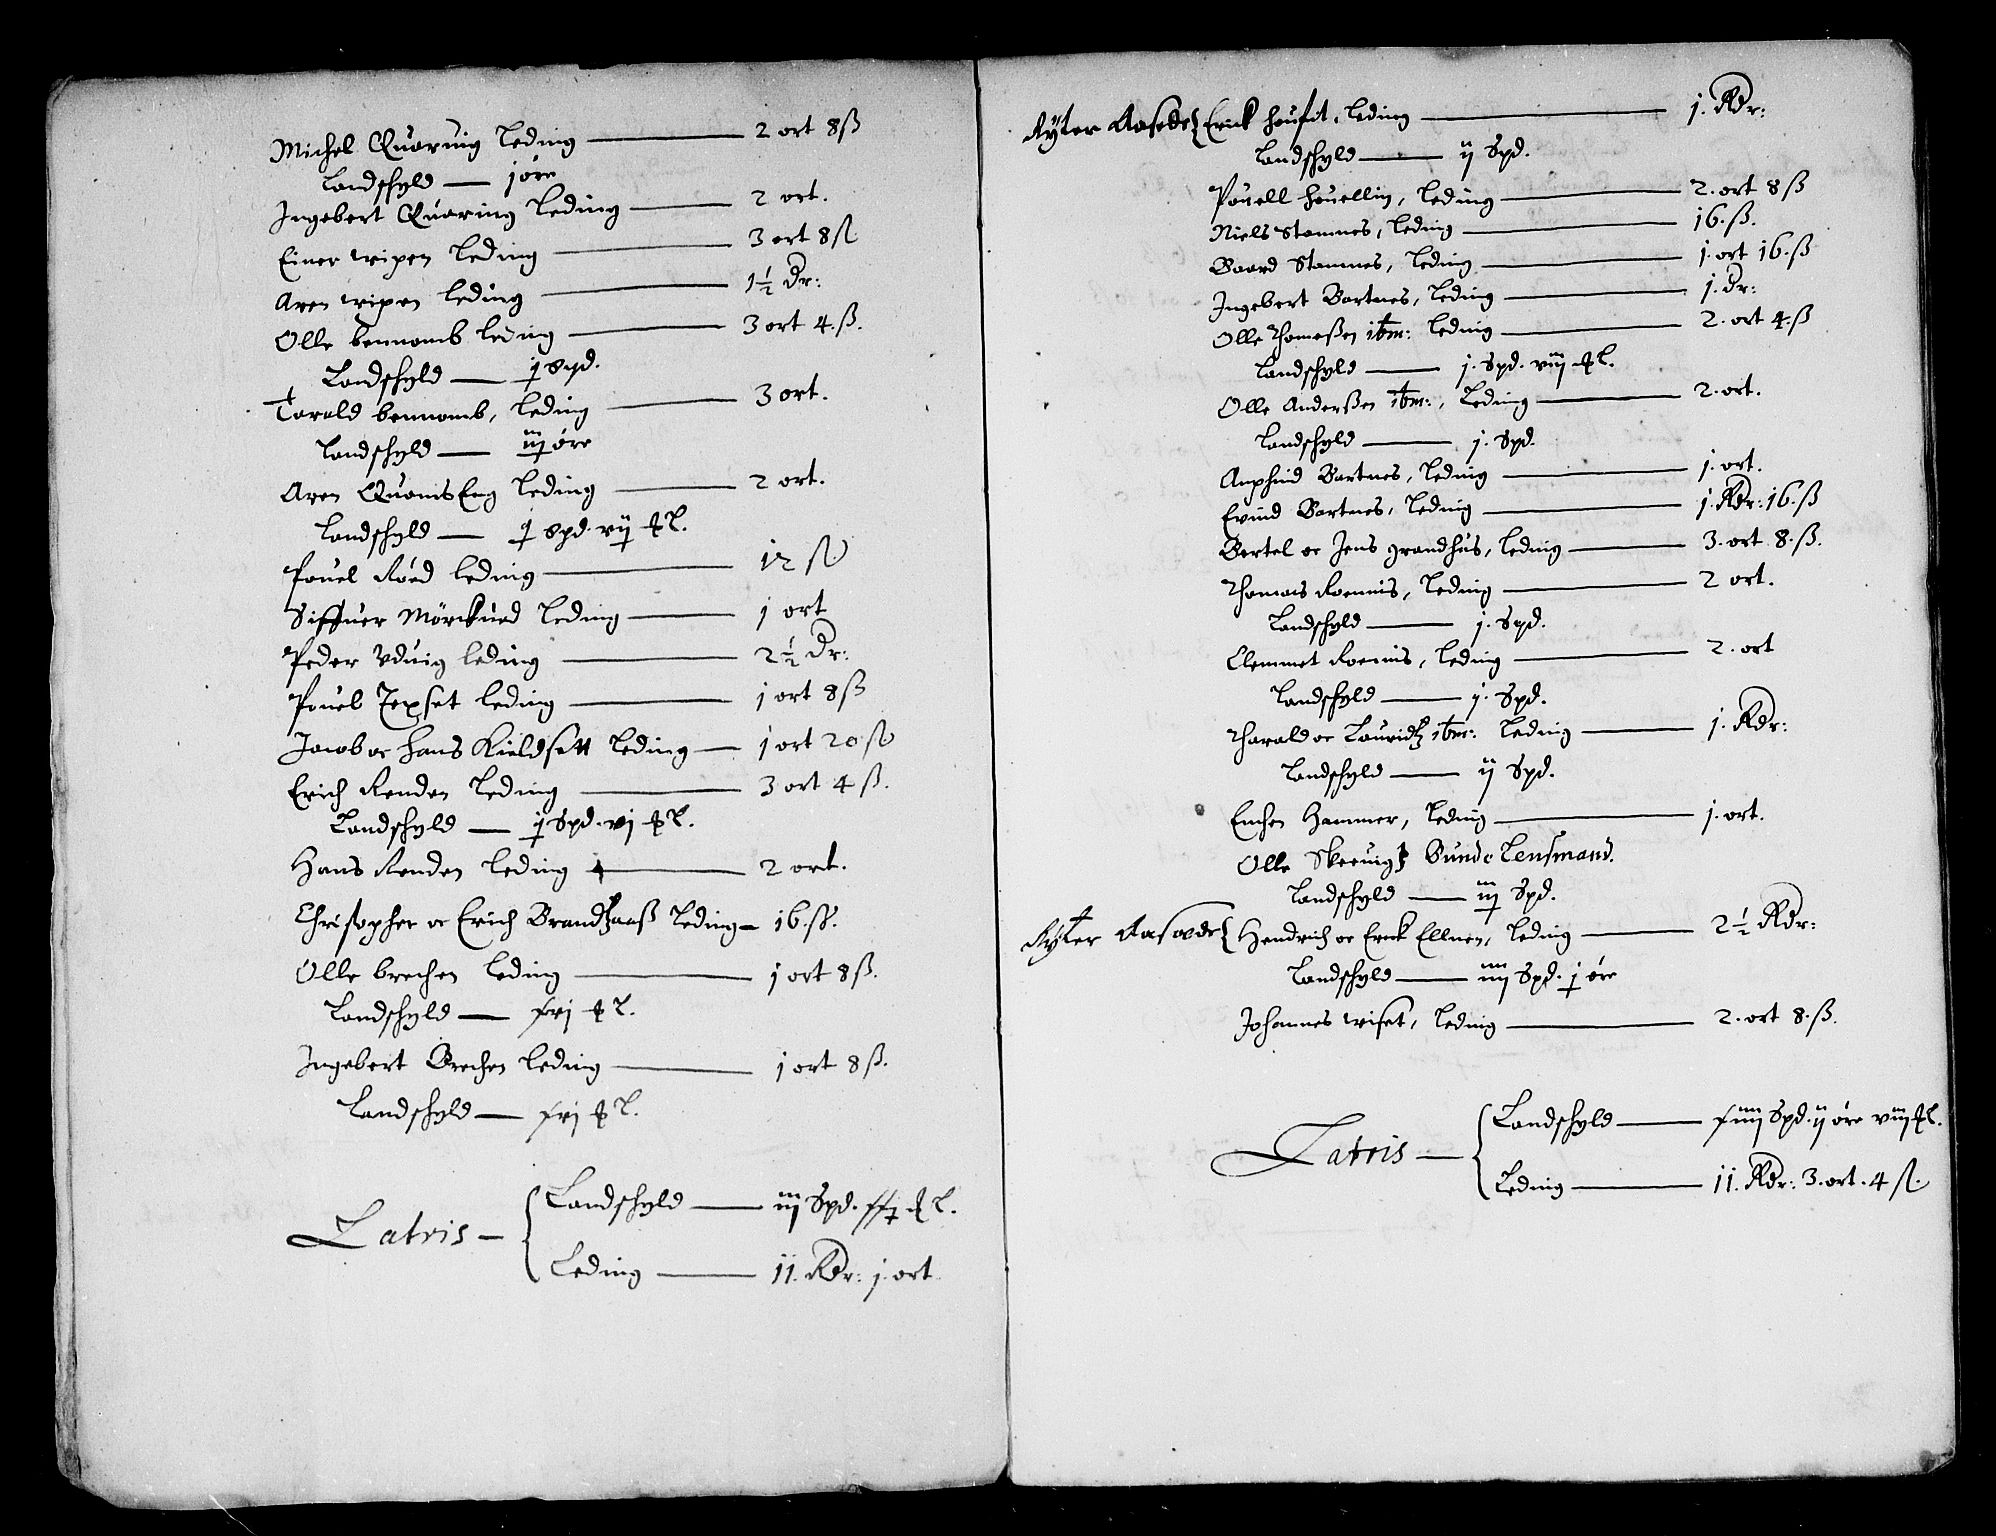 Michel Quarnig Leding — 2 ort 8ß
Landschyld — j øre
Ingebert Quaring Leding — 2 ort.
Einer wipen Leding — 3 ort 8ß
Aren wipen Leding — 1½ Dr:
Olle bennomb Leding — 3 ort 4.ß.
Landschyld — j Spd.
Torald bennomb, Leding — 3 ort.
Landschyld — iij øre
Aren QuamsEng Leding — 2 ort.
Landschyld — j Spd. vij ℔ l.
Pouel Røed Leding — 12 ß
Siffuer Mørckued Leding — 1 ort
Peder Vduig Leding — 2½ Dr:
Pouel Texset Leding — 1 ort 8ß
Jacob oc Hans Kieldsett Leding — 1 ort 20 ß
Erich Renden Leding — 3 ort 4 ß.
Landschyld — j Spd. vj ℔ l.
Hans Renden Leding — 2 ort.
Christopher oc Erich Brandtzaaß Leding — 16.ß.
Olle brechen Leding — 1 ort 8ß.
Landschyld — xvj ℔ l.
Ingebert Brechen Leding — 1 ort 8ß.
Landschyld — xvj ℔ l.
Latris — Landschyld — iij Spd. xxj ℔ l.
Leding — 11. Rdr: 1. ort
Ryter Aasede { Erick houfit, Leding — 1. Rdr:
Landschyld — ij Spd.
Pouell houellin, Leding — 2. ort 8 ß
Niels Stamnes, Leding — 16.ß.
Baard Stamnes, Leding — 1. ort 16.ß
Ingebert Bartnes, Leding — 1. Dr:
Olle Thomeßen ibm: Leding — 2. ort 4.ß
Landschyld — j. Spd. viij ℔ l.
Olle Anderßen ibm:, Leding — 2. ort.
Landschyld — j. Spd.
Anphind Bartnes, Leding — 1. ort.
Evind Bartnes, Leding — 1. Rdr: 16.ß
Bertel oc Jens grandhus, Leding — 3. ort 8.ß.
Thomas Roemnis, Leding — 2 ort.
Landschyld — j. Spd.
Clemmet Roemnis, Leding — 2. ort
Landschyld — j. Spd.
Tharald oc Lauridtz ibm: Leding — 1. Rdr:
Landschyld — ij Spd.
Emhen Hammer, Leding — 1. ort.
Olle Skeeuig } Bunde Lensmand.
Landschyld — iij Spd.
Ryter Aasæde { Hendrich oc Erick Ellnen, Leding — 2½ Rdr:
Landschyld — iiij Spd. j øre
Johannes wiset, Leding — 2. ort 8.ß.
Latris — Landschyld — xiiij Spd. ij øre viij ℔ l.
Leding — 11. Rdr: 3. ort. 4 ß.